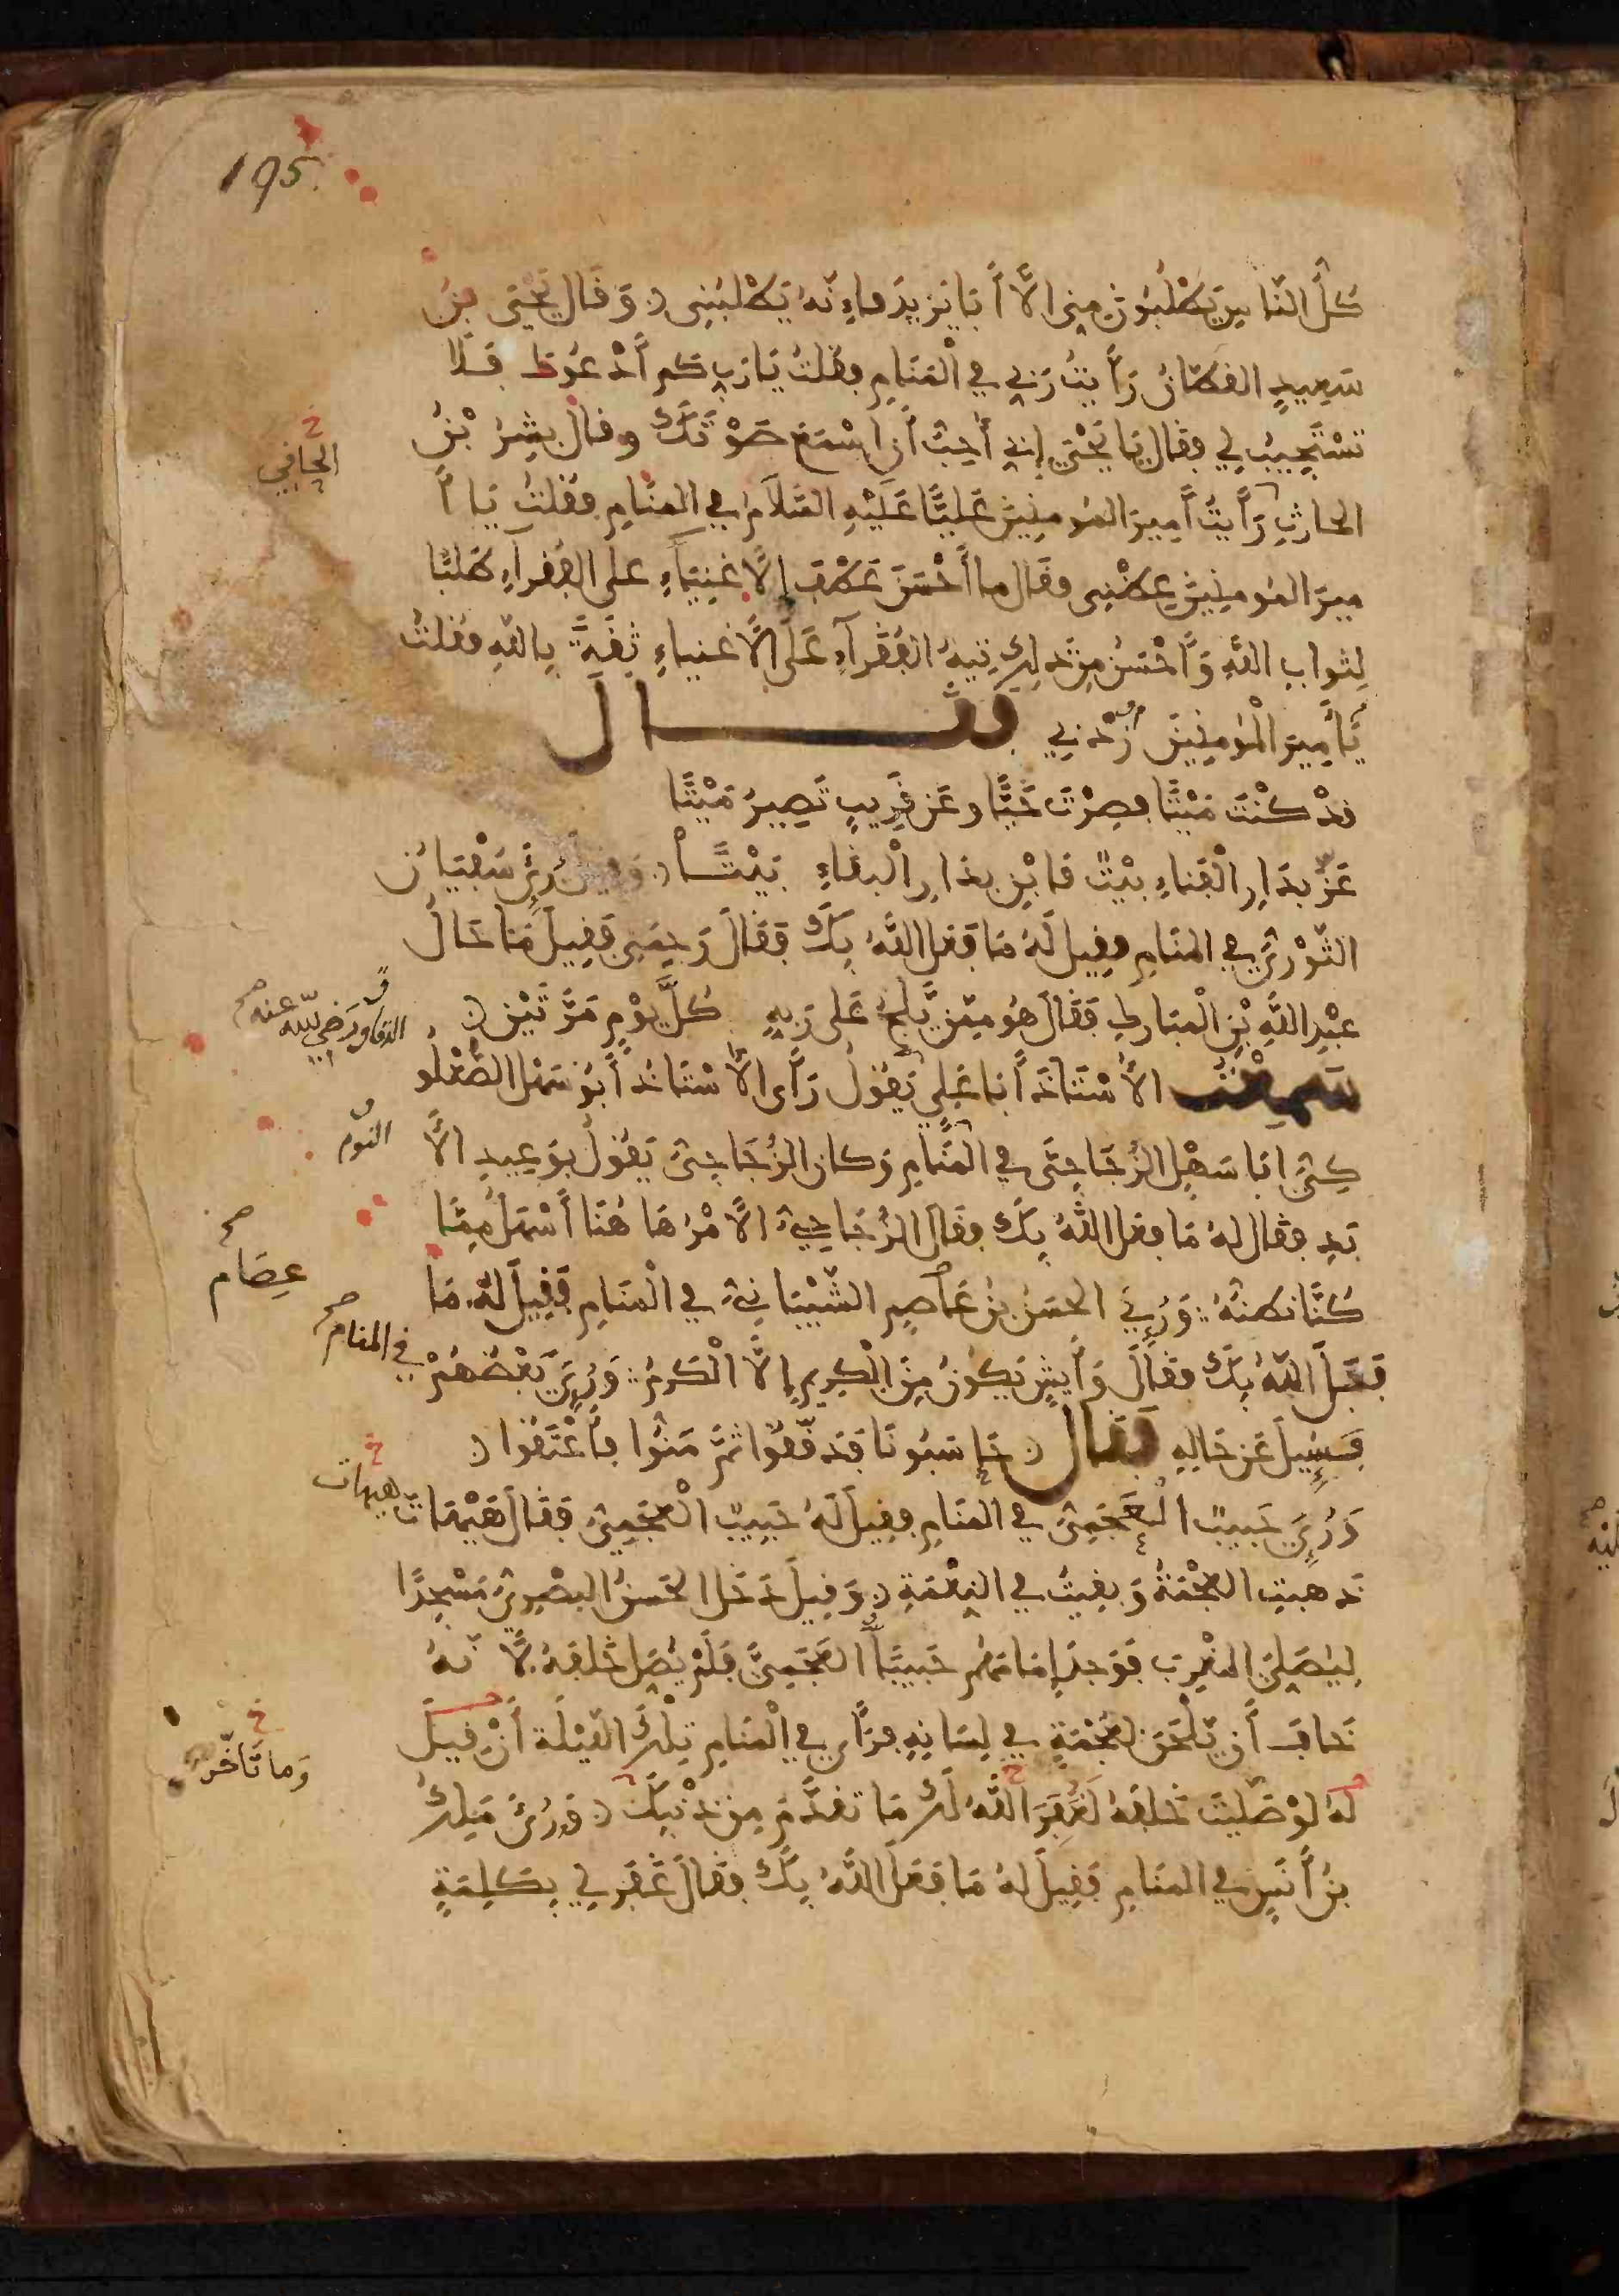 195
كُلُّ النَّاسِ يَطْلُبُونَ مِنِّى الَّا أَبَا يَزِيدَ فَإِنَّهُ يَطْلُبُنِى وَقَالَ يَحْيَى بنُ
سَعِيدٍ القطَّانُ رَأَيْتُ رَبِّي في الْمَنَامِ فقُلتُ يَا رَبِّ كم أَدْعُوكَ فَلَا
تَسْتَجِيبُ لِي فقَال يَا يَحْيَى إنِّي أُحِبُّ أَن اسْمَعَ صَوْتَكَ وقالَ بِشْرُ بْنُ
الحافي
الحارثِ رَأَيْتُ أَمِيرَ المُومِنِينَ عَلِيًّا عَلَيْهِ السَّلَامُ في المنَامِ فقُلتُ يَا أَ
مِيرَ المُومِنِينَ عِظْنِى فقَال ما أَحْسَنَ عَطْفَ الَاغْنِيَاءِ على الفُقراءِ طَلبًا
لِثوابِ اللَّهِ وَأَحْسَنُ مِن ذَلِكَ تِيهُ الفُقَرَآءِ عَلَى الَاغنياءِ ثِقَةً بِاللهِ فقُلتُ
يَا أَمِيرَ الْمُومِنِينَ زِدْنِي فقـــــال
قدْ كنْتَ مَيْتًا فصِرْتَ حَيًّا وعَن قَرِيبٍ تَصِيرُ مَيْتًا
عَزَّ بِدَارِ الْفَنَاءِ بيْتٌ فابْنِ بدَارِ الْبقاءِ بَيْتًــا وَقِيلَ رُئِيَ سُفْيَانُ
الثَّوْرِيُّ في المنَامِ فقِيل لَهُ مَا فَعَلَ اللَّهُ بِكَ فَقَالَ رَحِمَنِى فَقِيلَ مَا حَالُ
عبْدِ اللَّهِ بْنِ الْمبَارك فَقَالَ هُو مِمَّن يَّلِجُ عَلى رَبِّهِ كُلَّ يَوْمٍ مَرَّتَيْنِ
الدقاق رَضِي الله عنه صح
سَمِعْتُ الأُسْتَاذَ أَبَا عَلِي يَقُولُ رَأَى الأُسْتَاذُ أَبُو سَهْل الصُّعْلُو
كِيُّ ابَا سَهْلِ الزُّجَاجِيَّ في المَنَامِ وَكان الزُّجَاجِيُّ يَقُولُ بوَعِيدِ الَا
النوم
بَدِ فقَال لهُ مَا فعَل اللَّهُ بِكَ فقَالَ الزُّجَاجِيُّ الَامْرُ هَا هُنَا أَسْهَلُ مِمَّا
كُنَّا نظنُّهُ وَرُئِيَ الحسَنُ بنُ عَاصِمٍ الشَّيْبَانِيُّ في الْمَنَامِ فَقِيلَ لَهُ مَا
عِصَام
صح
فَعَلَ اللَّهُ بِكَ فقَالَ وَأَيشٍ يَكُونُ مِنَ الْكَرِيمِ إلَّا الْكَرمُ وَرُئِيَ بَعْضُهُمْ
في المنام صح
فَسُئِيلَ عَن حَالِهِ فَقَال حَاسَبُونَا فَدَقَّقُوا ثُمَّ مَنُّوا فأَعْتَقُوا
وَرُئِيَ حَبِيبٌ الْعَجَمِيُّ في المَنَامِ فقِيلَ لَهُ حَبِيبٌ الْعَجَمِيُّ فَقَالَ هَيْهَاتَ
هيهات
ذَهبتِ العُجْمَةُ وَبقِيتُ في النِعْمَةِ وَقِيلَ دَخَل الحَسَنُ البصْرِيُّ مَسْجِدًا
لِيُصَلِّيَ المغْرِبَ فوَجدَ إمَامَهُم حَبِيبًا العَجَمِيَّ فلَمْ يُصَلِّ خَلفَهُ لِأَنَّهُ
خَافَ أَن يَّلْحَنَ لِعُجْمَةٍ في لِسَانِهِ فرَأى في الْمَنَامِ تِلْكَ اللَّيْلَةَ أَنْ قِيلَ
لهُ لوْ صَلَّيْتَ خَلفهُ لَغَفَرَ اللَّهُ لَكَ مَا تقدَّمَ مِن ذَنْبِكَ وَرُئِيَ مَلِكُ
وَما تَأخّرَ
بنُ أَنَسٍ في المنَامِ فَقِيلَ لهُ مَا فَعَلَ اللَّهُ بِكَ فقَالَ غَفَرَ لِي بِكَلِمَةٍ